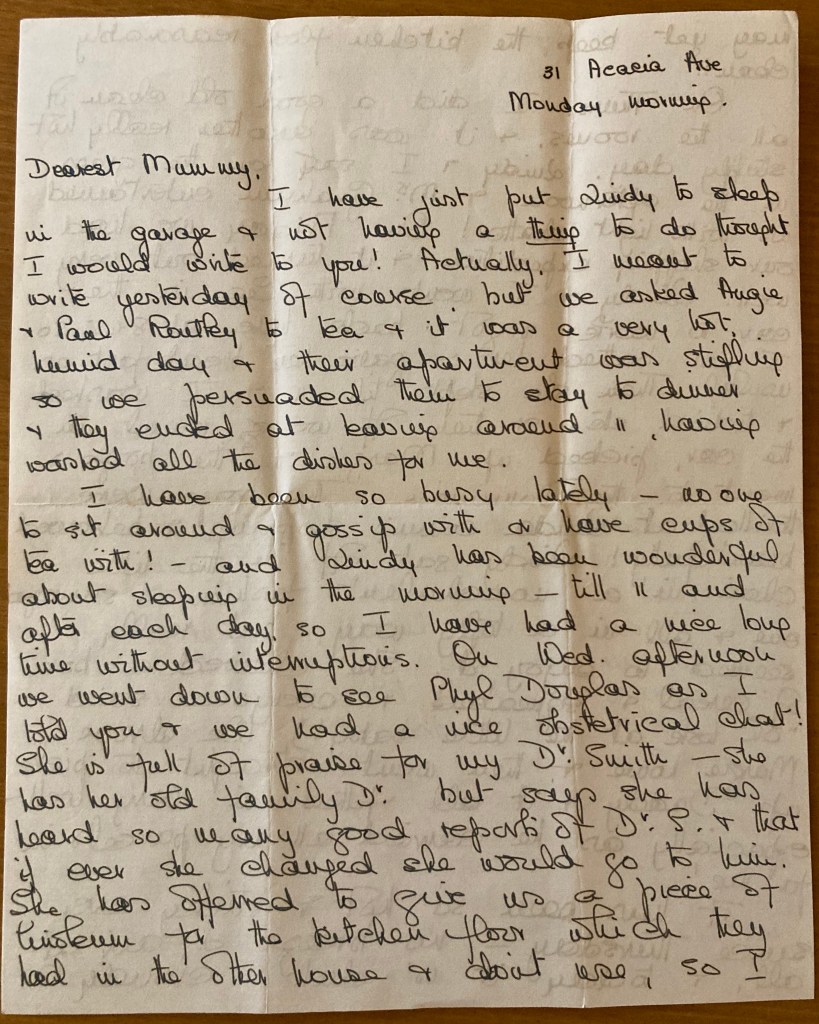 31 Acacia Ave
Monday morning.
Dearest Mummy,
I have just put Lindy to sleep
in the garage & not having a thing to do thought
I would write to you! Actually, I meant to
write yesterday of course, but we asked Augie
& Paul Routley to tea & it was a very hot,
humid day & their apartment was stifling
so we persuaded them to stay to dinner
& they ended at leaving around 11, having
washed all the dishes for me.
I have been so busy lately – no one
to sit around & gossip with or have cups of
tea with! – and Lindy has been wonderful
about sleeping in the morning – till 11 and
after each day, so I have had a nice long
time without interruptions. On Wed. afternoon
we went down to see Phyl Douglas as I
told you & we had a nice obstetrical chat!
She is full of praise for my Dr. Smith – she
has her old family Dr. but says she has
heard so many good reports of Dr. S. & that
if ever she changed she would go to him.
She has offered to give us a piece of
linoleum for the kitchen floor which they
had in the other house & don't use, so I